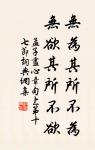 無為其所不為
無欲其所不欲
孟子盡心章句上第十
七節詞典網集